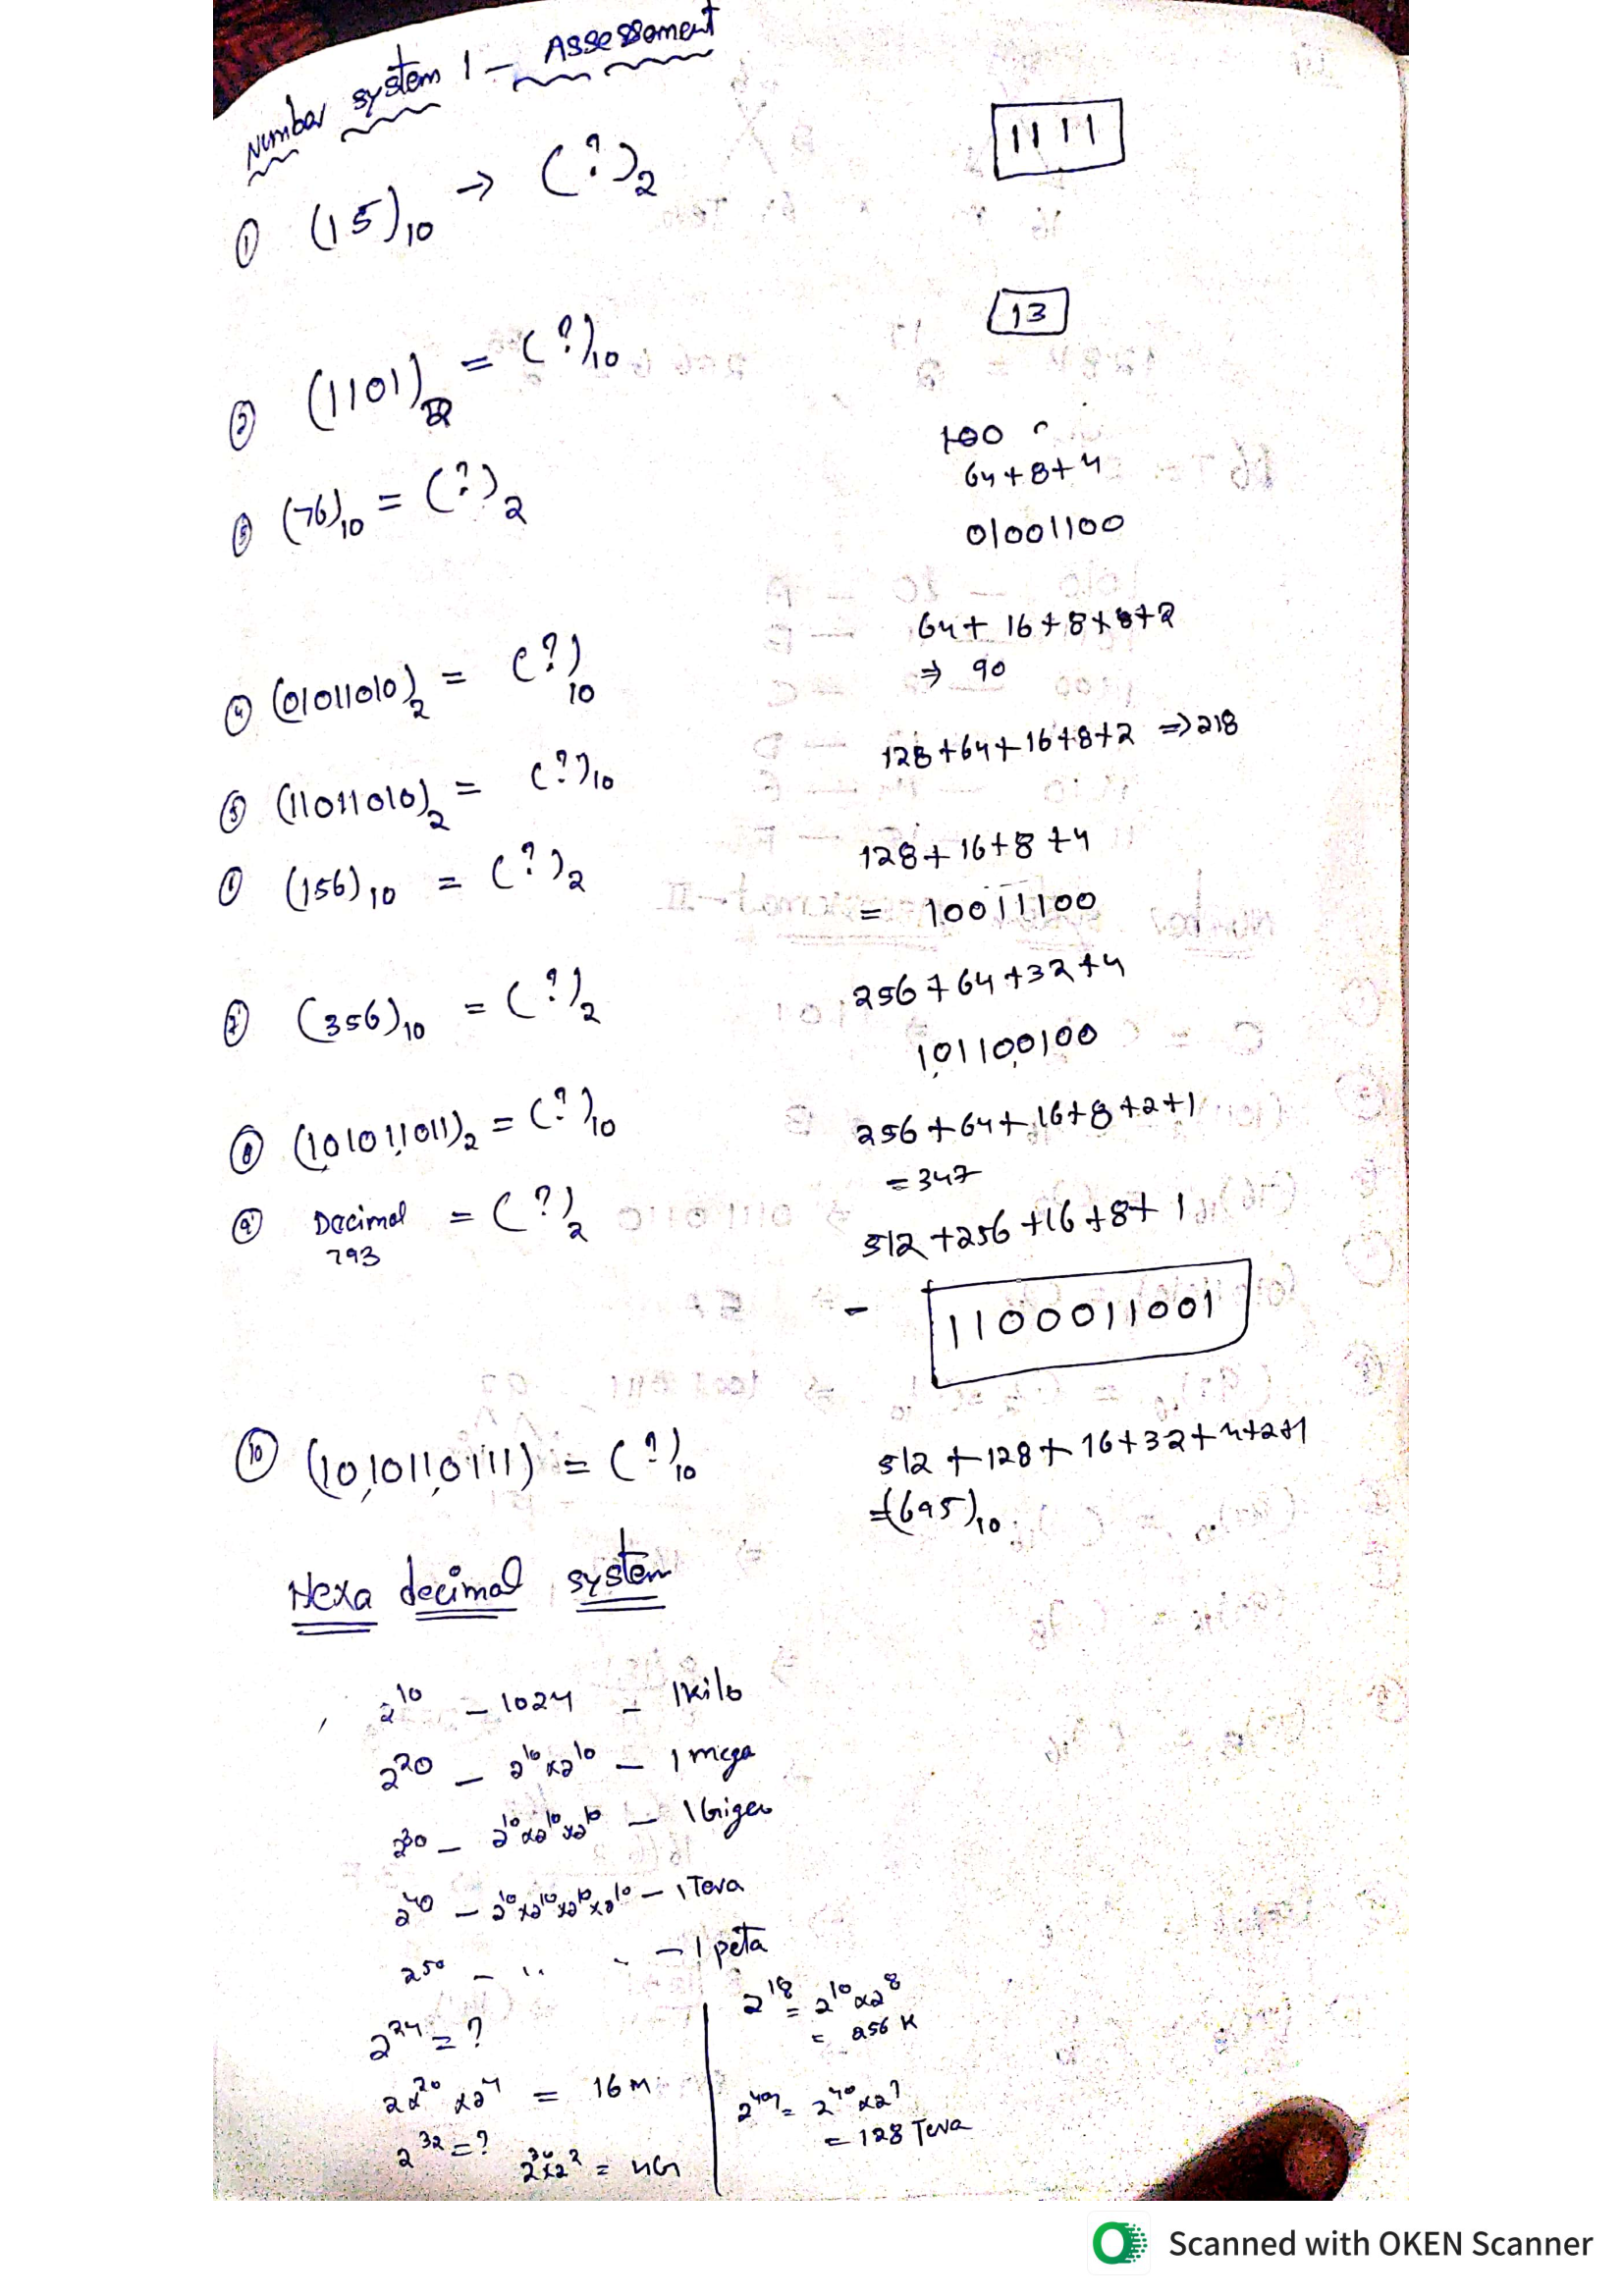 Number system 1 - Assessment
① (15)₁₀ → (?)₂ 1111
② (1101)₂ = (?)₁₀ 13
100
③ (76)₁₀ = (?)₂ 64+8+4
01001100
④ (01011010)₂ = (?)₁₀ 64+ 16+8+8+2
⇒ 90
⑤ (11011010)₂ = (?)₁₀ 128+64+16+8+2 ⇒218
⑥ (156)₁₀ = (?)₂ 128+16+8+4
= 10011100
⑦ (356)₁₀ = (?)₂ 256+64+32+4
1,01100,100
⑧ (1,0101,1011)₂ = (?)₁₀ 256+64+16+8+2+1
=347
⑨ Decimal = (?)₂ 512+256+16+8+1
793
- 1100011001
⑩ (10,1011,0111) = (?)₁₀ 512+128+16+32+4+2+1
=(695)₁₀
Hexa decimal system
2¹⁰ - 1024 - 1Kilo
2²⁰ - 2¹⁰x2¹⁰ - 1 mega
2³⁰ - 2¹⁰x2¹⁰x2¹⁰ - 1Giga
2⁴⁰ - 2¹⁰x2¹⁰x2¹⁰x2¹⁰ - 1Tera
2⁵⁰ - .. - 1 peta
2²⁴ = ?
2x²⁰ x2⁴ = 16M
2³² = ? 2³⁰x2² = 4G
2¹⁸ = 2¹⁰x2⁸
= 256 K
2⁴⁷ = 2⁴⁰x2⁷
= 128 Tera
Scanned with OKEN Scanner